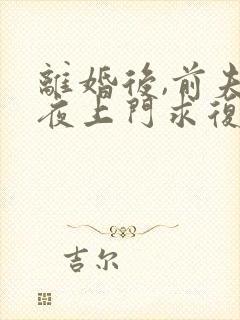 離婚後,前夫
夜上門求復
吉尔